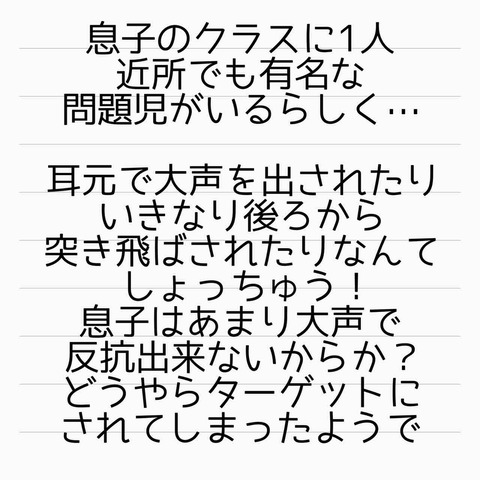 息子のクラスに1人
近所でも有名な
問題児がいるらしく…
耳元で大声を出されたり
いきなり後ろから
突き飛ばされたりなんて
しょっちゅう！
息子はあまり大声で
反抗出来ないからか？
どうやらターゲットに
されてしまったようで